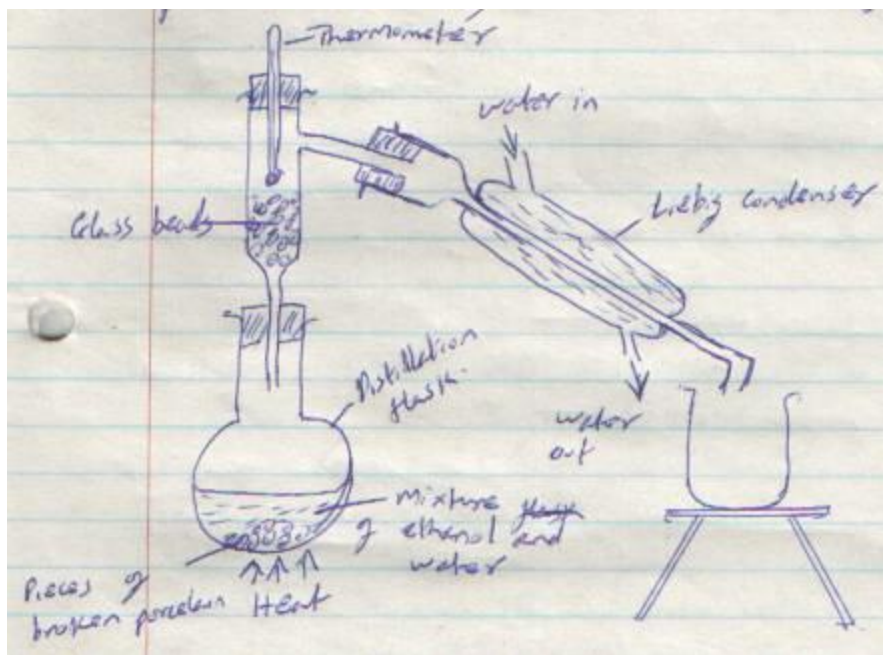 Thermometer
water in
Liebig condenser
Glass beads
Distillation
flask
water
out
mixture
of ethanol and
water
Pieces of
broken porcelain
Heat